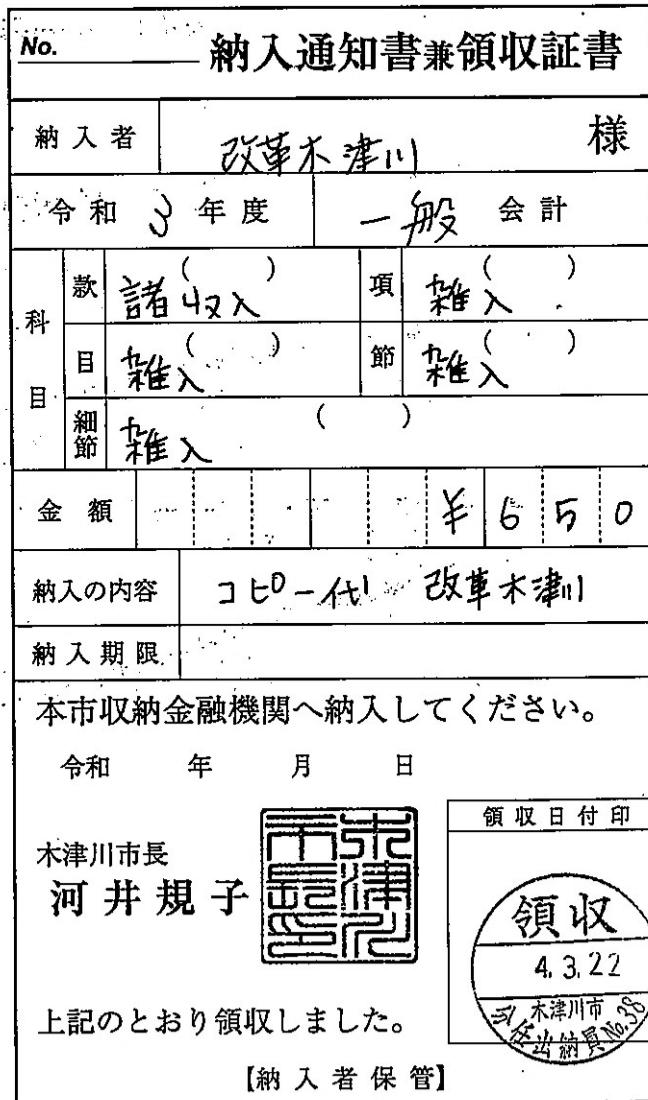 No. 納入通知書兼領収証書
納入者 改革木津川 様
令和 3 年度 一般 会計
科目 款 諸収入 ( ) 項 雑入 ( )
目 雑入 ( ) 節 雑入 ( )
細節 雑入 ( )
金額 ¥ 6 5 0
納入の内容 コピー代 改革木津川
納入期限
本市収納金融機関へ納入してください。
令和 年 月 日
木津川市長
河井規子
木津川市長印
領収日付印
領収
4.3.22
木津川市
分任出納員No.38
上記のとおり領収しました。
【納入者保管】